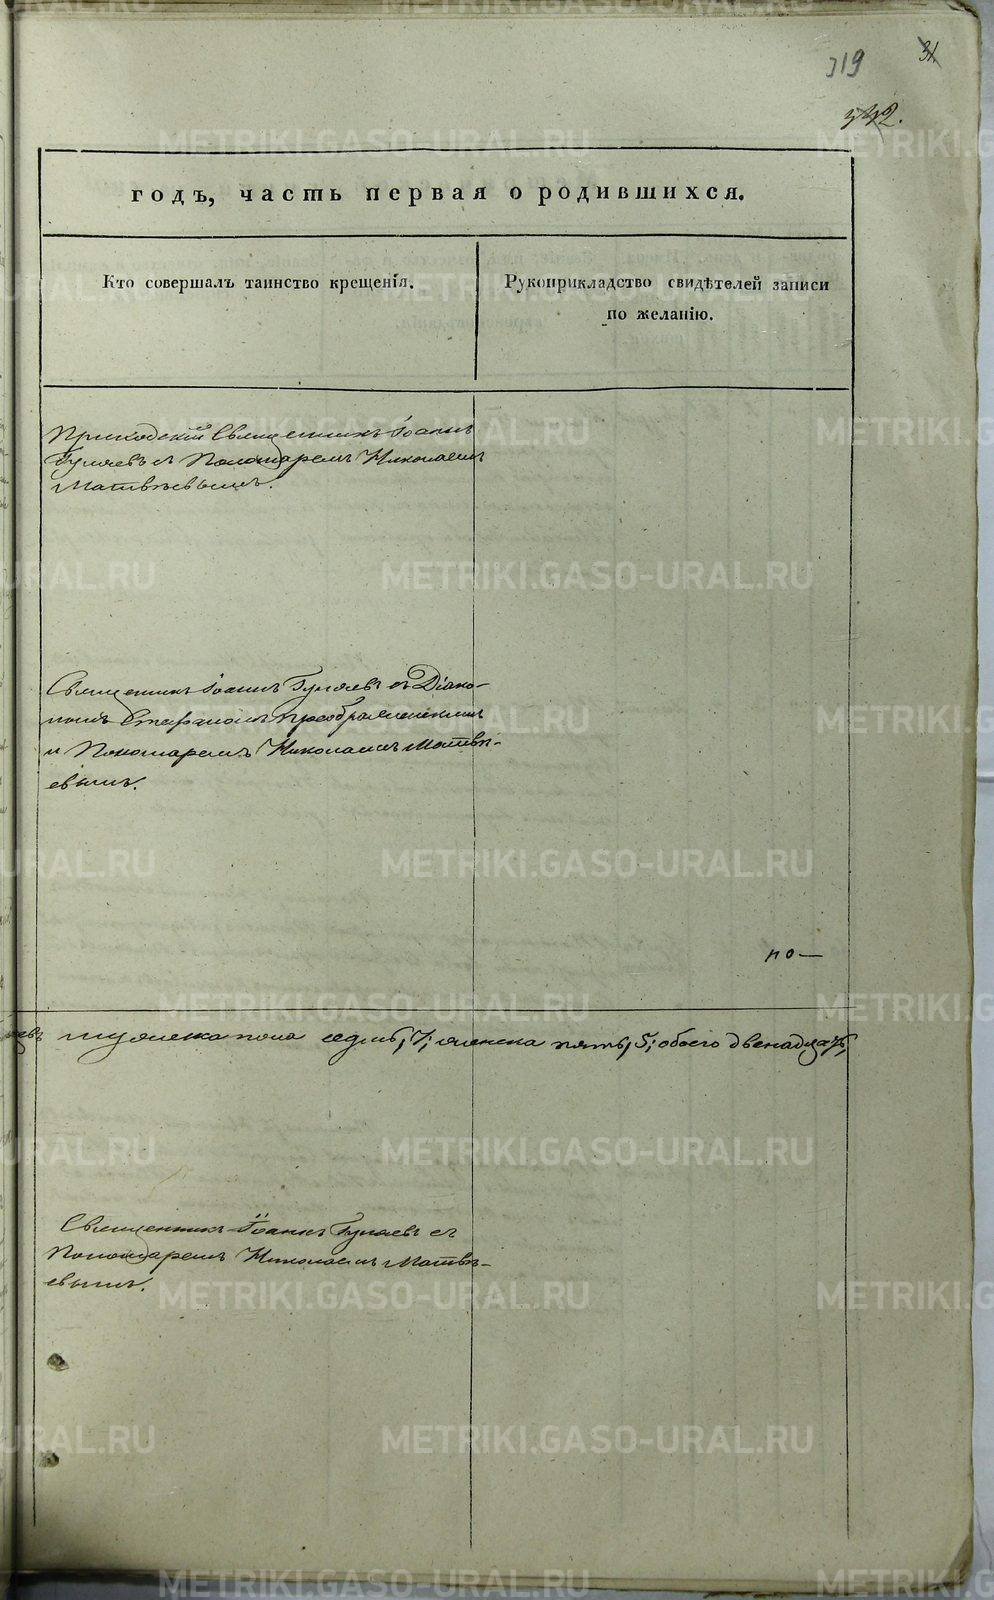 319
31
332.
годъ, часть первая о родившихся.
Кто совершалъ таинство крещенія.
Рукоприкладство свидѣтелей записи
по желанію.
Приходскій Священникъ Іоаннъ
Гуляевъ съ Пономаремъ Николаемъ
Матвѣевымъ.
Священникъ Іоаннъ Гуляевъ съ Діако-
номъ Стефаномъ Преображенскимъ
и Пономаремъ Николаемъ Матвѣ-
евымъ.
по—
мужеска пола седмь, 7; женска пять, 5; обоего двенадцать,
Священникъ Іоаннъ Гуляевъ съ
Пономаремъ Николаемъ Матвѣ-
евымъ.
METRIKI.GASO-URAL.RU